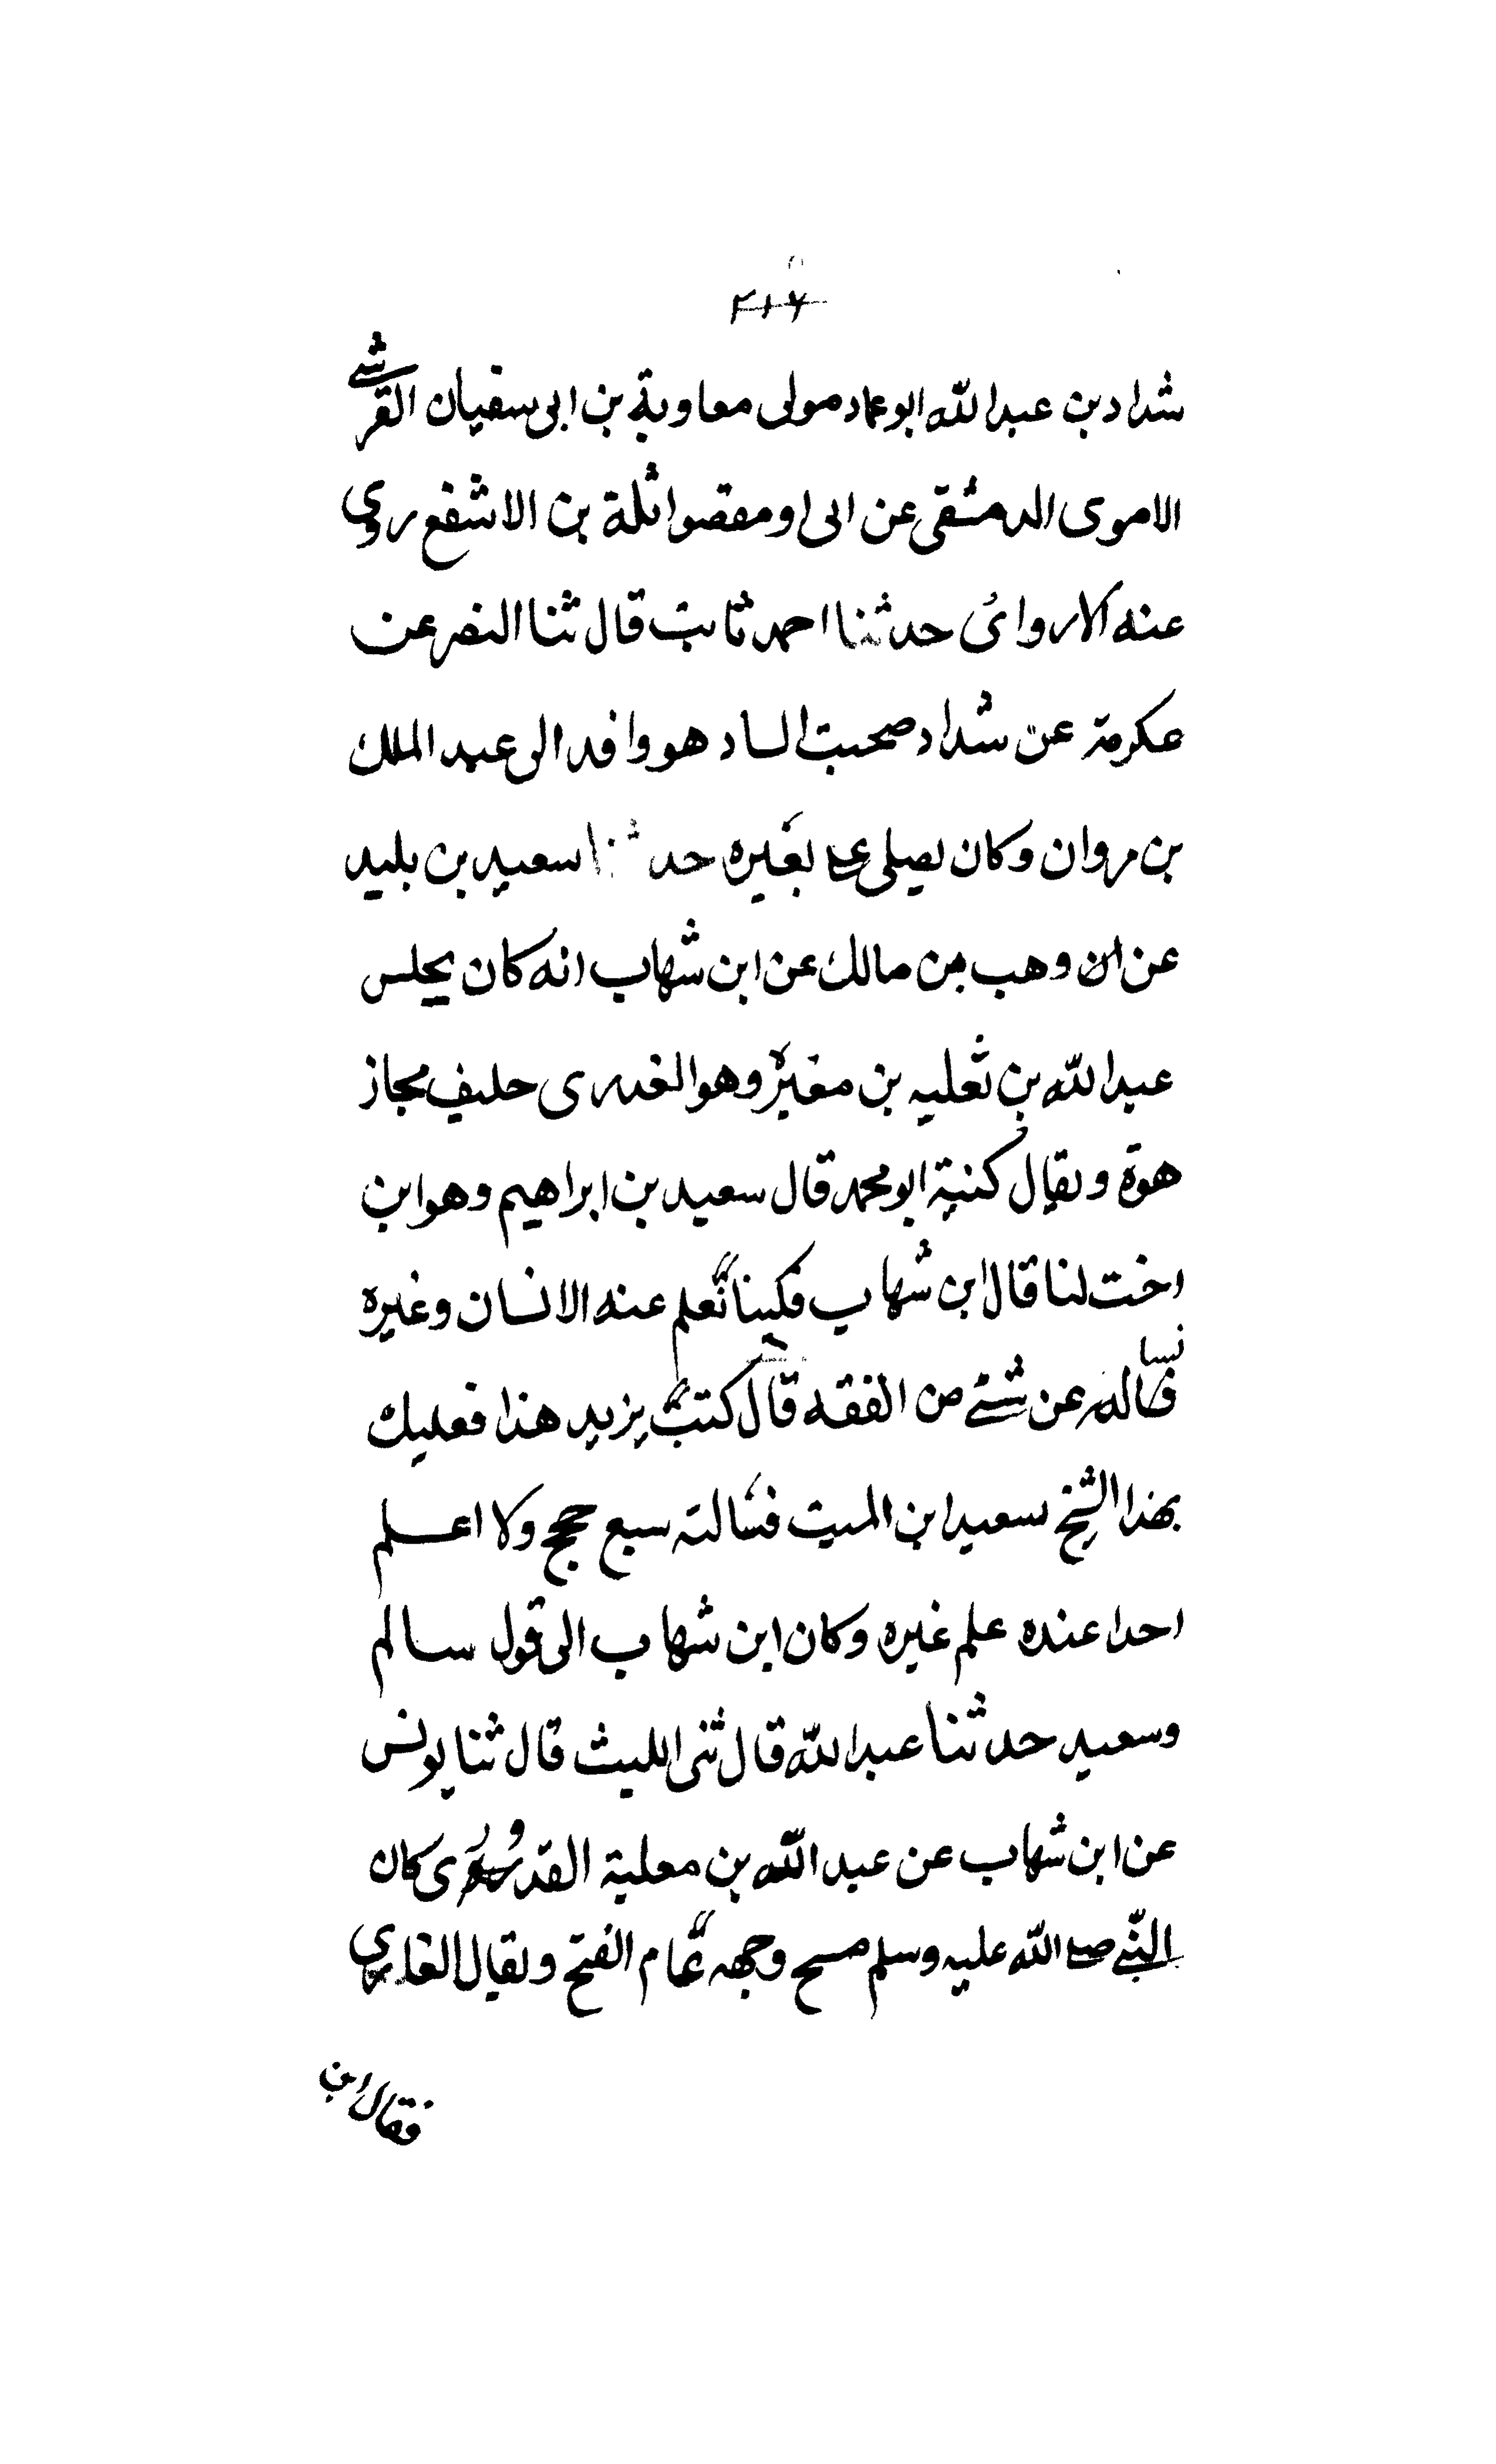 ۲۱۶
شداد بن عبد الله ابو عماد مولى معاوية بن ابى سفيان القرشى
الاموى الدمشقى عن ابى او مقصو اثلة بن الاشفع روى
عنه الاروائ حدثنا احمد ثابت قال ثنا النضر عن
عكرمة عن شداد صحبت الساد هو وافد الى عبد الملك
بن مروان وكان يصلى على بغيره حدثنا سعيد بن بليد
عن ابن وهب من مالك عن ابن شهاب انه كان يجلس
عبد الله بن ثعليه بن مغيرة وهو الغدرى حليف مجاز
هوة ويقال كنية ابو محمد قال سعيد بن ابراهيم وهو ابن
اخت لنا قال ابن شهاب فكينا نعلم عنه الانسان وغيره
فساله عن شئ من الفقه قال كتب يزيد هذا فعليك
بهذا الشيخ سعيد ابن الميت فسالته سبع حجج ولا اعلم
احدا عنده علم غيره وكان ابن شهاب الى قول سالم
وسعيد حدثنا عبد الله قال ثنى الليث قال ثنا يونس
عن ابن شهاب عن عبد الله بن معلية القدورى كان
النبى صلى الله عليه وسلم مسح وجهه عام الفتح ويقال الغارى
فقال ابن